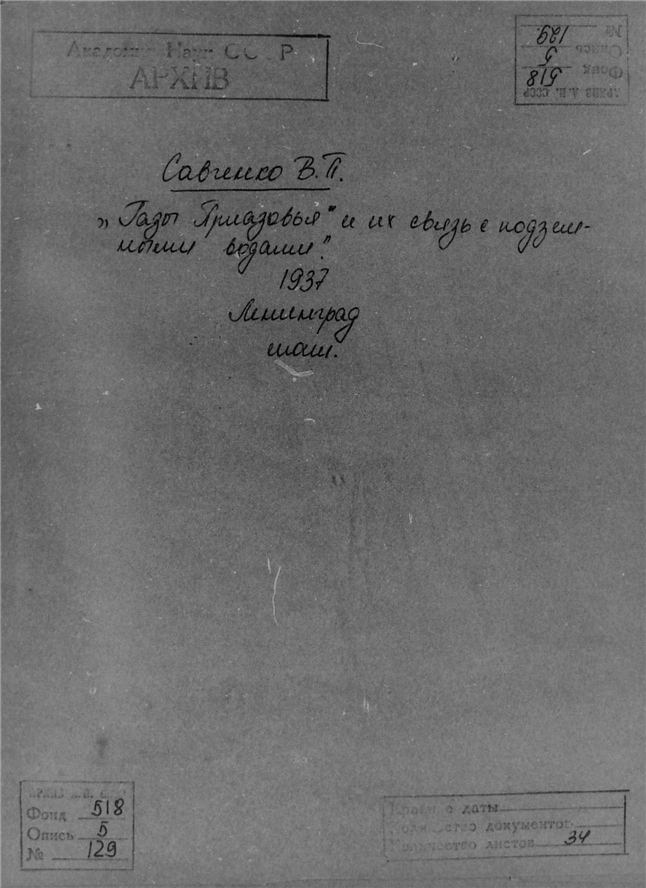 Академии Наук СССР
АРХИВ
№ 129
Опись 5
Фонд 518
АРХИВ А.Н. СССР
Савченко В.П.
„Газы Приазовья" и их связь с подзем-
ными водами".
1937
Ленинград
маш.
АРХИВ А.Н. СССР
Фонд 518
Опись 5
№ 129
Крайние даты
Количество документов
Количество листов 34